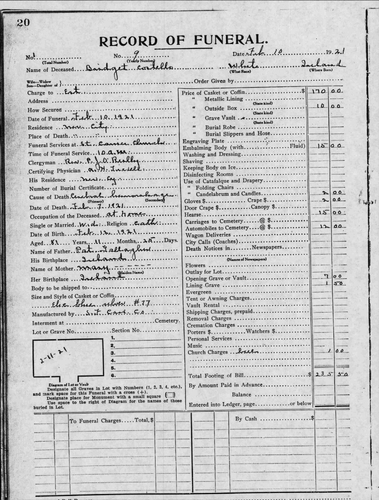 20
RECORD OF FUNERAL.
No. 1 No. 9 Date Feb. 10 1921
(Total Number) (Yearly Number)
Name of Deceased Bridget Costello White Ireland
(What Race) (Where Born)
Order Given by
Charge to Est
Address
How Secured
Date of Funeral Feb. 10, 1921
Residence City
Place of Death
Funeral Services at St. Church
Time of Funeral Service 10 a.m.
Clergyman Rev. P. J. O'Reilly
Certifying Physician
His Residence
Number of Burial Certificate
Cause of Death Cerebral Hemorrhage
Date of Death Feb. 7, 1921
Occupation of the Deceased at Home
Single or Married Wid. Religion Cath.
Date of Birth Feb. 12, 1921
Aged 81 Years, 11 Months, 25 Days.
Name of Father Pat. Gallagher
His Birthplace Ireland
Name of Mother Mary
Her Birthplace Ireland
Body to be shipped to
Size and Style of Casket or Coffin
#77
Manufactured by Co
Interment at Cemetery.
Lot or Grave No. Section No.
1.
2.
3.
4.
5.
6.
2-11-21
Diagram of Lot or Vault
Designate all Graves in Lot with Numbers (1, 2, 3, 4, etc.),
and mark space for this Funeral with a cross (+).
Designate place for Monument with a small square
Use space to the right of Diagram for the names of those
buried in Lot.
Price of Casket or Coffin $ 170 00
" Metallic Lining
" Outside Box 10 00
(State kind)
" Grave Vault
(State kind)
" Burial Robe
(State kind)
" Burial Slippers and Hose
Engraving Plate
Embalming Body (with Fluid) 15 00
Washing and Dressing
Shaving
Keeping Body on Ice
Disinfecting Rooms
Use of Catafalque and Drapery
" Folding Chairs
" Candelabrum and Candles 2 00
Gloves $ Crape $ 2 00
Door Crape $ Canopy $
Hearse 15 00
Carriages to Cemetery @ $
Automobiles to Cemetery @ $ 12 00
Wagon Deliveries
City Calls (Coaches)
Death Notices in Newspapers.
(Names of Newspapers)
Flowers
Outlay for Lot
Opening Grave or Vault 7 00
Lining Grave 1 50
Evergreen
Tent or Awning Charges
Vault Rental
Shipping Charges, prepaid
Removal Charges
Cremation Charges
Posters $ Watchers $
Personal Services
Music
Church Charges 1 00
Total Footing of Bill $ 235 50
By Amount Paid in Advance
Balance
Entered into Ledger, page or below.
To Funeral Charges, Total $ By Cash $